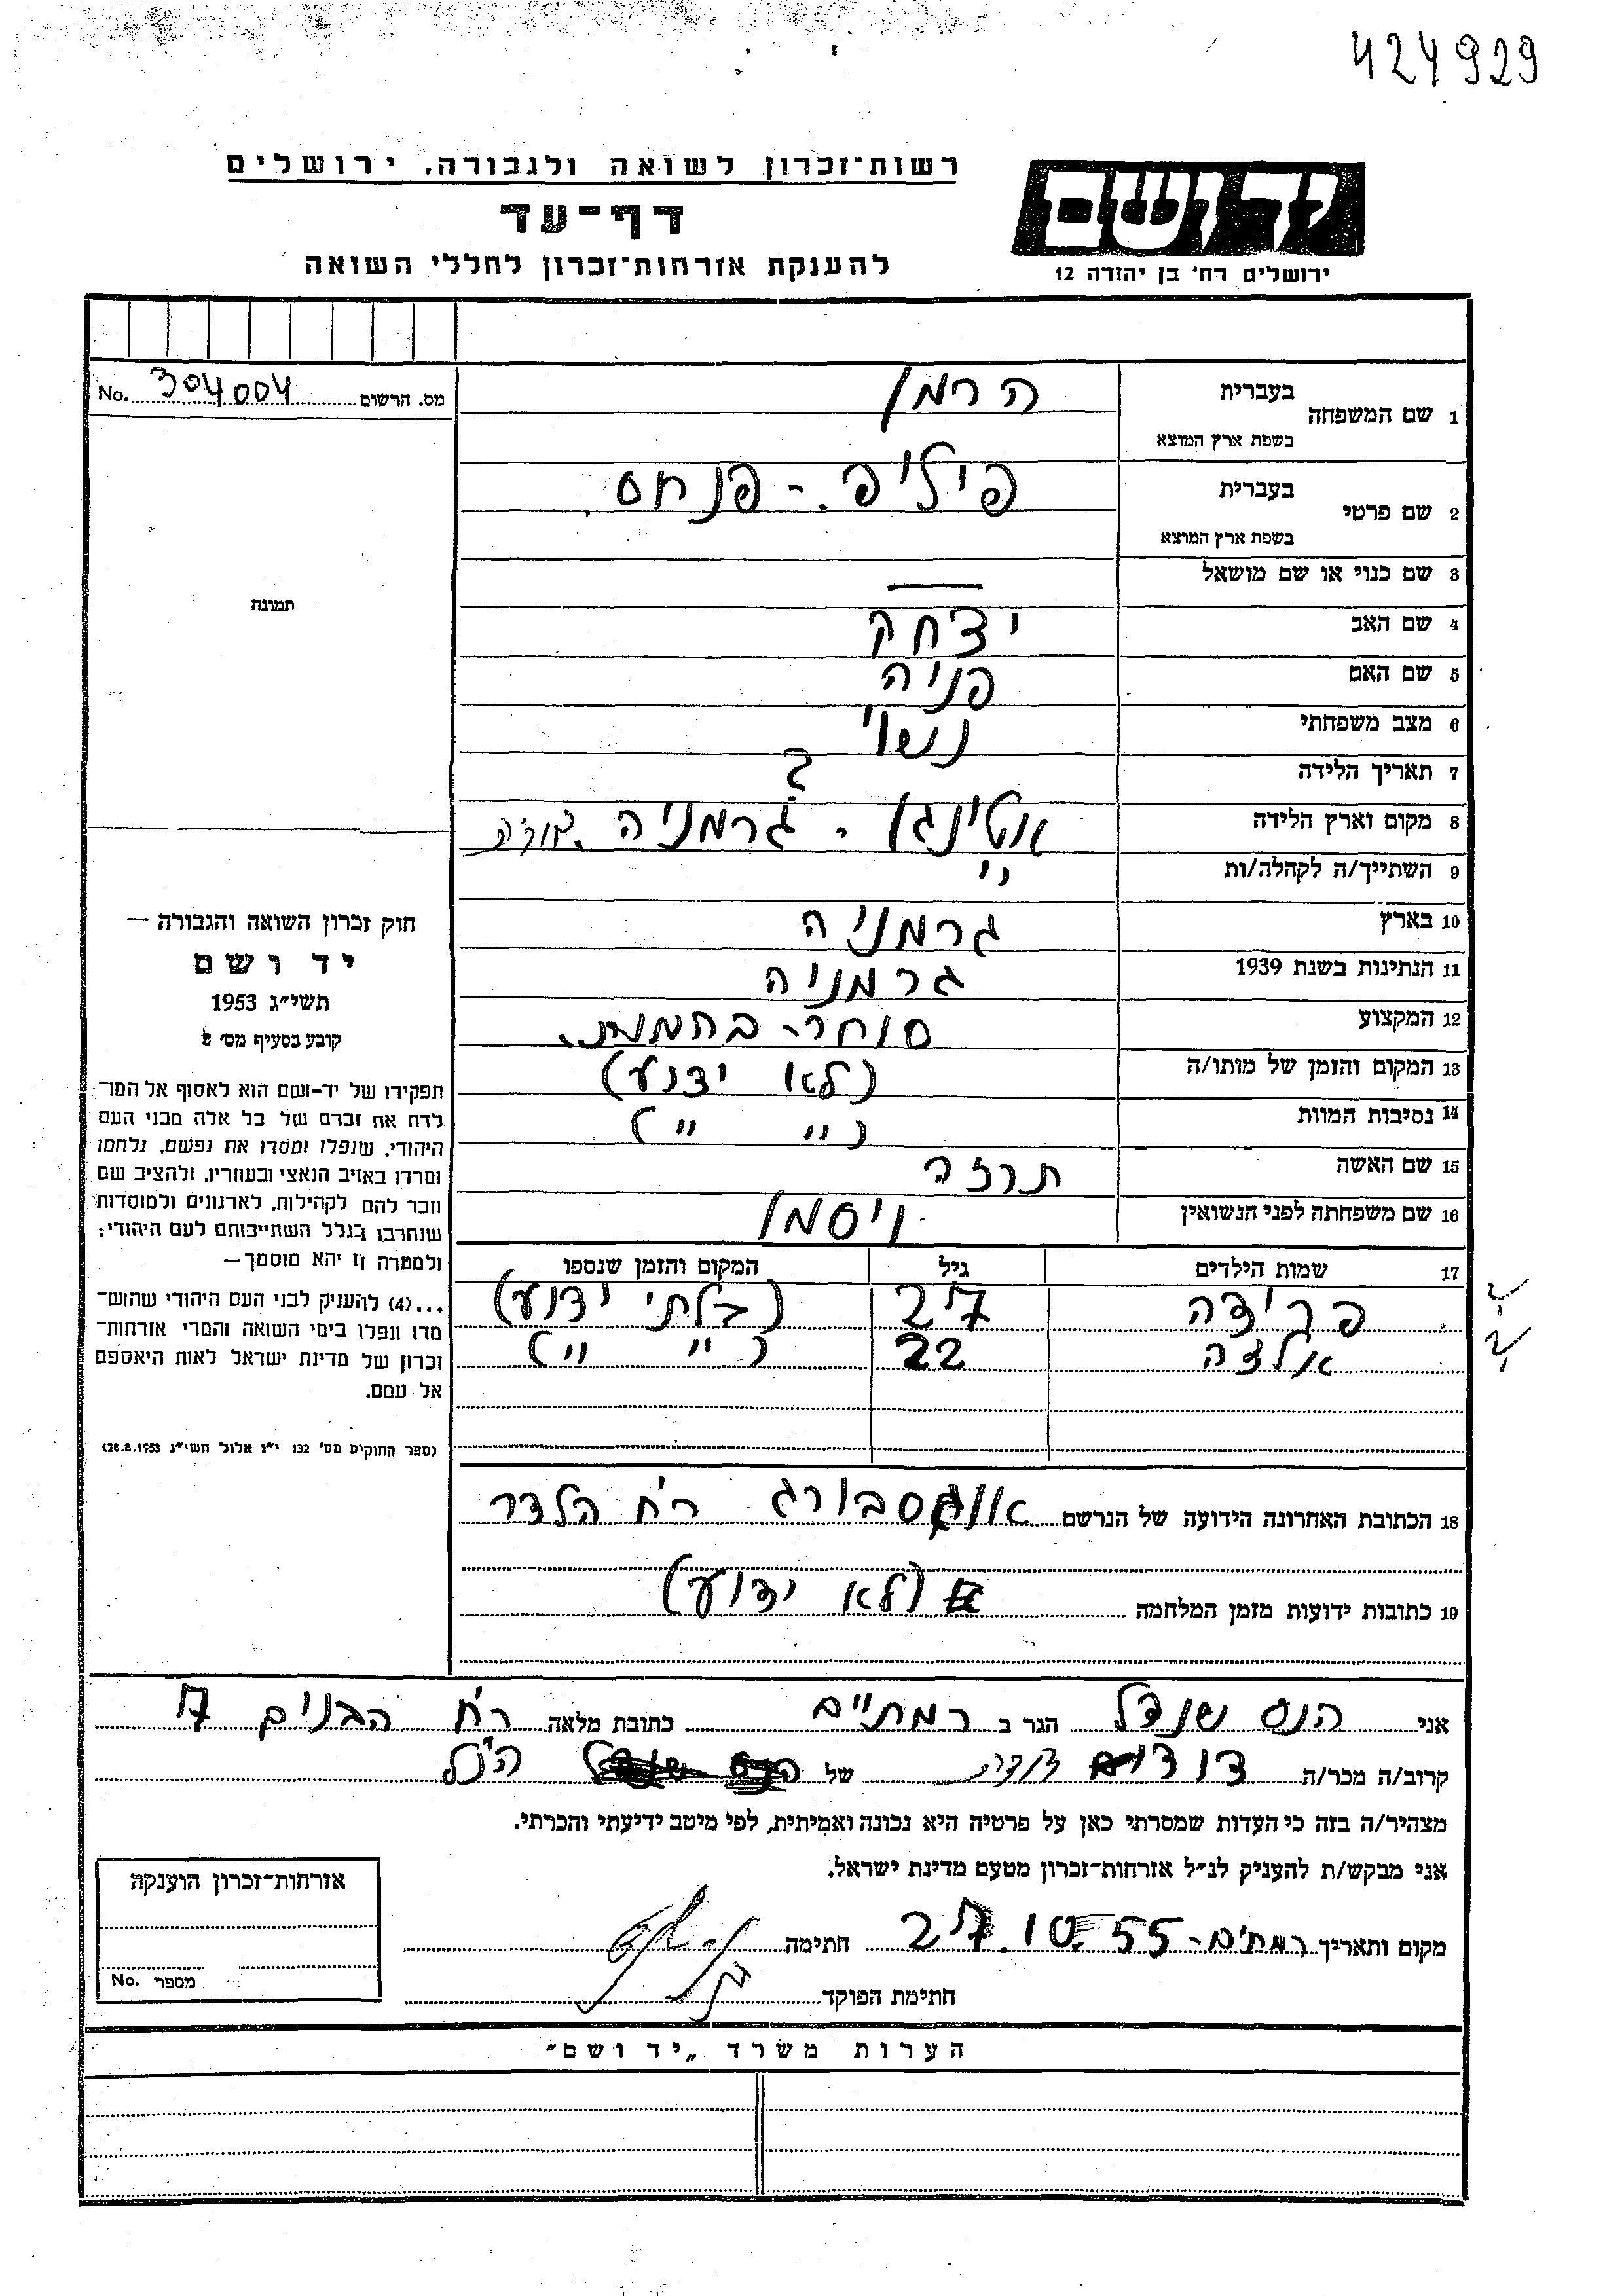 424929
רשות־זכרון לשואה ולגבורה, ירושלים
דף־עד
להענקת אזרחות־זכרון לחללי השואה
יד ושם
ירושלים רח' בן יהודה 12
מס. הרשום 304004 No.
1 שם המשפחה בעברית הרמן
בשפת ארץ המוצא
2 שם פרטי בעברית פיליפ - פנחס
בשפת ארץ המוצא
3 שם כנוי או שם מושאל —
4 שם האב יצחק
5 שם האם פניה
6 מצב משפחתי נשוי
7 תאריך הלידה ?
8 מקום וארץ הלידה אטינגן - גרמניה
9 השתייך/ה לקהלה/ות "
10 בארץ גרמניה
11 הנתינות בשנת 1939 גרמניה
12 המקצוע סוחר-
13 המקום והזמן של מותו/ה (לא ידוע)
14 נסיבות המוות (" ")
15 שם האשה תרזה
16 שם משפחתה לפני הנשואין ויסמן
17 שמות הילדים גיל המקום והזמן שנספו
פרידה 27 (בלתי ידוע)
אלזה 22 (" ")
18 הכתובת האחרונה הידועה של הנרשם אוגסבורג רח' הלדר
19 כתובות ידועות מזמן המלחמה (לא ידוע)
תמונה
חוק זכרון השואה והגבורה —
יד ושם
תשי״ג 1953
קובע בסעיף מס׳ 2
תפקידו של יד-ושם הוא לאסוף אל המו־
לדת את זכרם של כל אלה מבני העם
היהודי, שנפלו ומסרו את נפשם, נלחמו
ומרדו באויב הנאצי ובעוזריו, ולהציב שם
וזכר להם לקהילות, לארגונים ולמוסדות
שנחרבו בגלל השתייכותם לעם היהודי;
ולמטרה זו יהא מוסמך—
...(4) להעניק לבני העם היהודי שהוש־
מדו ונפלו בימי השואה והמרי אזרחות־
זכרון של מדינת ישראל לאות היאספם
אל עמם.
(ספר החוקים מס' 132 י״ז אלול תשי״ג 28.8.1953)
אני הנס שנדל הגר ב רמתיים כתובת מלאה רח' הבנים 17
קרוב/ה מכר/ה של הנ״ל
מצהיר/ה בזה כי העדות שמסרתי כאן על פרטיה היא נכונה ואמיתית, לפי מיטב ידיעתי והכרתי.
אני מבקש/ת להעניק לנ״ל אזרחות־זכרון מטעם מדינת ישראל.
מקום ותאריך רמתים - 27.10.55 חתימה
חתימת הפוקד
אזרחות־זכרון הוענקה
מספר No.
הערות משרד „יד ושם״